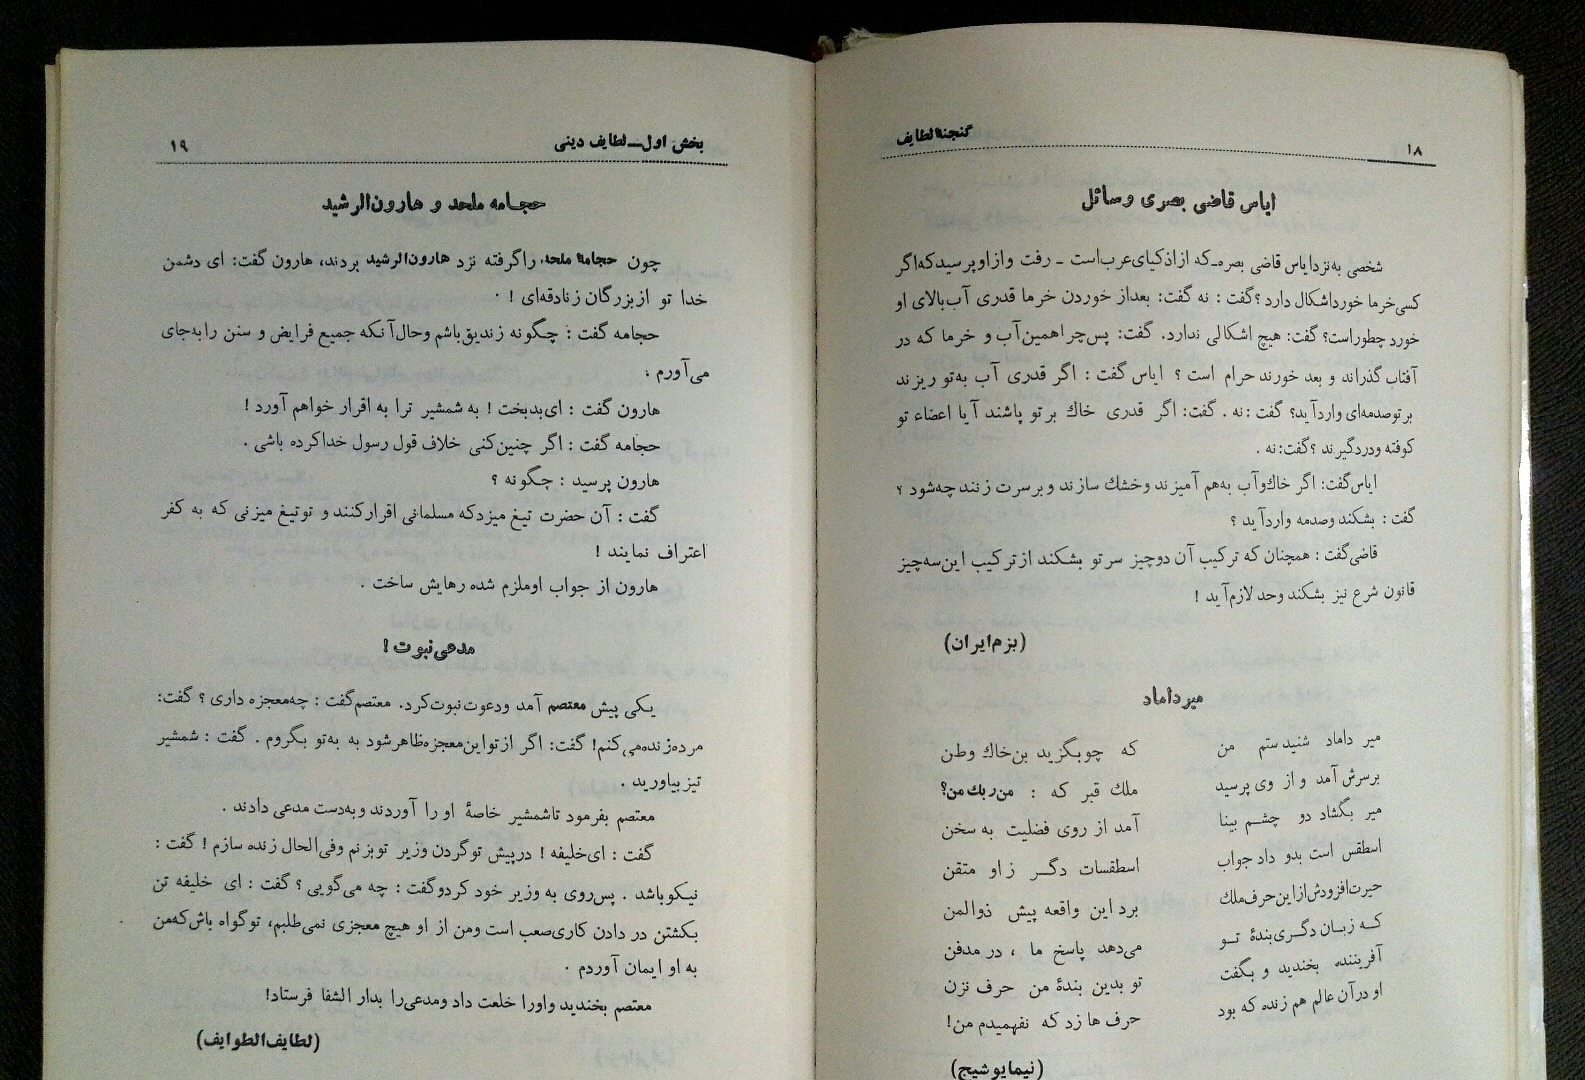 ۱۸ گنجنۀ‌لطایف
ایاس قاضی بصری و سائل
شخصی به‌نزد ایاس قاضی بصره‌ـ که از اذکیای عرب است ـ رفت و از او پرسید که اگر
کسی خرما خورد اشکال دارد ؟ گفت : نه گفت: بعد از خوردن خرما قدری آب بالای او
خورد چطور است؟ گفت: هیچ اشکالی ندارد. گفت: پس چرا همین آب و خرما که در
آفتاب گذراند و بعد خورند حرام است ؟ ایاس گفت : اگر قدری آب به‌تو ریزند
بر تو صدمه‌ای وارد آید؟ گفت : نه . گفت: اگر قدری خاك بر تو پاشند آیا اعضاء تو
کوفته و درد گیرند ؟ گفت: نه .
ایاس گفت: اگر خاك و آب به‌هم آمیزند و خشك سازند و بر سرت زنند چه شود ؟
گفت : بشکند و صدمه وارد آید ؟
قاضی گفت : همچنان که ترکیب آن دوچیز سر تو بشکند از ترکیب این سه چیز
قانون شرع نیز بشکند و حد لازم آید !
(بزم ایران)
میرداماد
میر داماد شنیدستم من که چو بگزید بن خاك وطن
برسرش آمد و از وی پرسید ملك قبر که : من ربك من؟
میر بگشاد دو چشم بینا آمد از روی فضلیت به سخن
اسطقس است بدو داد جواب اسطقسات دگر زاو متقن
حیرت افزودش از این حرف ملك برد این واقعه پیش ذوالمن
که زبان دگری بندۀ تو می‌دهد پاسخ ما ، در مدفن
آفریننده بخندید و بگفت تو بدین بندۀ من حرف نزن
او در آن عالم هم زنده که بود حرف ها زد که نفهمیدم من!
(نیما یوشیج)
بخش اول ـ لطایف دینی ۱۹
حجامه ملحد و هارون‌الرشید
چون حجامه ملحد، را گرفته نزد هارون‌الرشید بردند، هارون گفت: ای دشمن
خدا تو از بزرگان زنادقه‌ای !
حجامه گفت : چگونه زندیق باشم و حال آنکه جمیع فرایض و سنن را به‌جای
می‌آورم .
هارون گفت : ای بدبخت ! به شمشیر ترا به اقرار خواهم آورد !
حجامه گفت : اگر چنین کنی خلاف قول رسول خدا کرده باشی .
هارون پرسید : چگونه ؟
گفت : آن حضرت تیغ میزد که مسلمانی اقرار کنند و تو تیغ میزنی که به کفر
اعتراف نمایند !
هارون از جواب او ملزم شده رهایش ساخت .
مدعی نبوت !
یکی پیش معتصم آمد و دعوت نبوت کرد. معتصم گفت : چه معجزه داری ؟ گفت:
مرده زنده می‌کنم! گفت: اگر از تو این معجزه ظاهر شود به به‌تو بگروم . گفت : شمشیر
تیز بیاورید .
معتصم بفرمود تا شمشیر خاصۀ او را آوردند و به‌دست مدعی دادند .
گفت : ای خلیفه ! در پیش تو گردن وزیر تو بزنم و فی‌الحال زنده سازم ! گفت :
نیکو باشد . پس روی به وزیر خود کرد و گفت : چه می‌گویی ؟ گفت : ای خلیفه تن
بکشتن در دادن کاری صعب است و من از او هیچ معجزی نمی‌طلبم، تو گواه باش که من
به او ایمان آوردم .
معتصم بخندید و اورا خلعت داد و مدعی را بدار الشفا فرستاد!
(لطایف‌الطوایف)